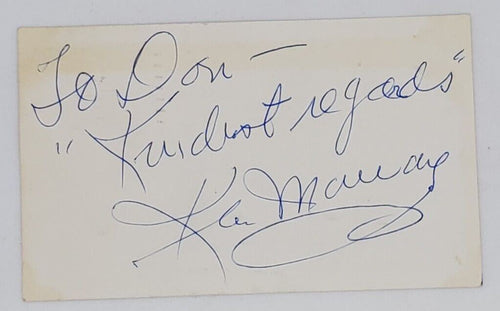 To Don —
"Kindest regards"
Ken Murray